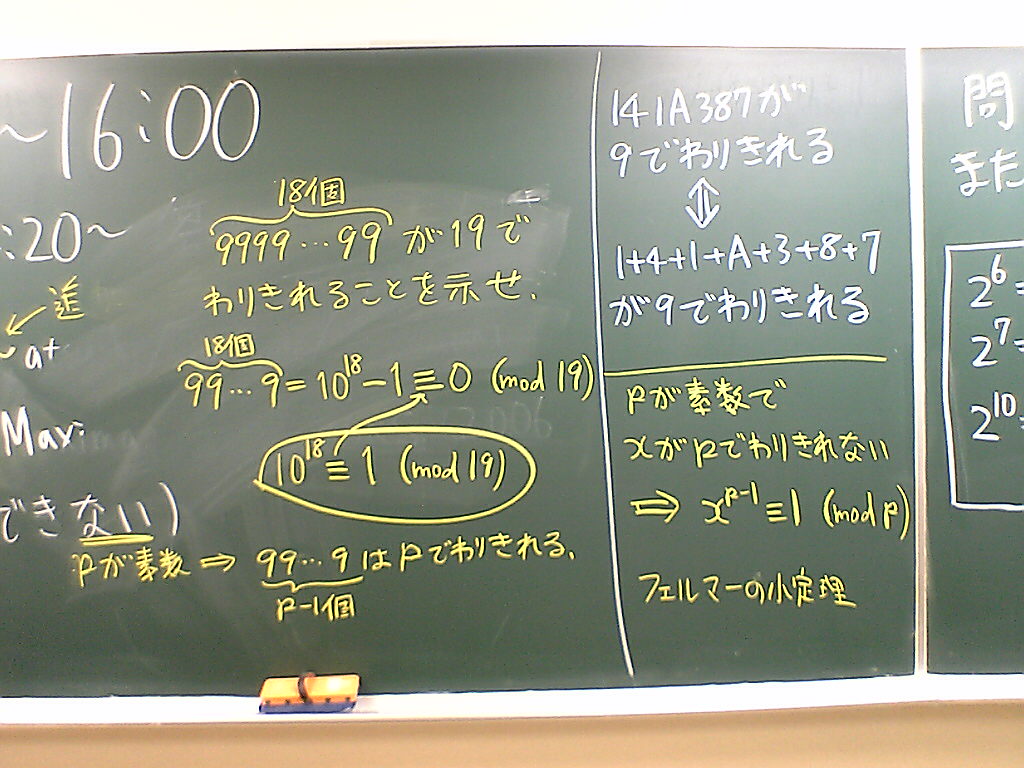 ~16:00
:20~
進
~a+
Max:
できない)
18個
9999…99 が 19で
わりきれることを示せ.
18個
99…9=10^18-1≡0 (mod 19)
10^18≡1 (mod 19)
Pが素数 ⇒ 99…9 はPでわりきれる.
P-1個
141A387が
9でわりきれる
⇕
1+4+1+A+3+8+7
が9でわりきれる
Pが素数で
xがPでわりきれない
⇒ x^P-1≡1 (mod P)
フェルマーの小定理
問
また
2^6=
2^7=
2^10=